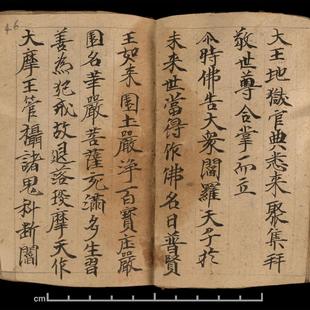 大王地獄官典悉来聚集拜
敬世尊合掌而立
尒時佛告大衆閻羅天子於
未来世當得作佛名曰普賢
王如来國土嚴淨百寶庄嚴
國名華嚴菩薩充滿多生習
善為犯戒故退落琰摩天作
大摩王管攝諸鬼科斷閻
46
cm